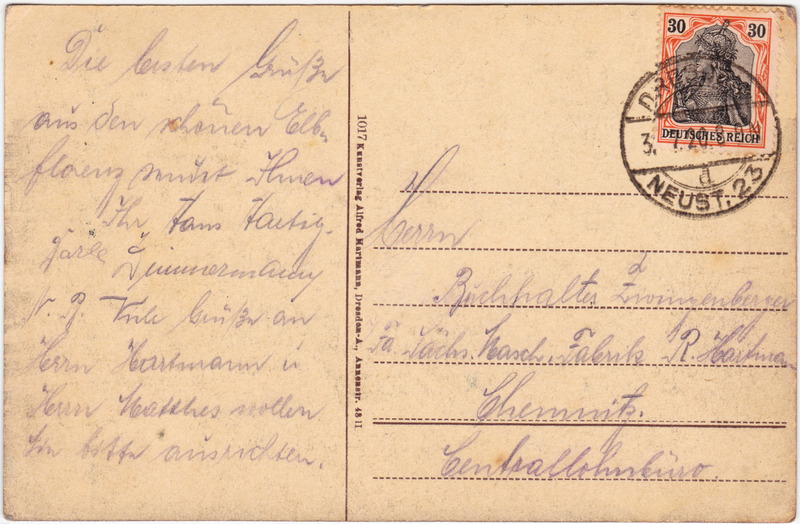 Die besten Grüße
aus den schönen Elb-
florenz sendet Ihnen
Ihr Hans Hartig.
Zimmermann
N. B. Viele Grüße an
Herrn Hartmann u
Herrn Matthes wollen
Sie bitte ausrichten.
1017 Kunstverlag Alfred Hartmann, Dresden-A., Annenstr. 48 II
30 30
DEUTSCHES REICH
DRESDEN
3. 7. 20. 8-9 N
d
NEUST. 23
Herrn
Buchhalter Zwingenberger
Fa. Sächs. Masch. Fabrik R. Hartma
Chemnitz.
Centrallohnbüro.